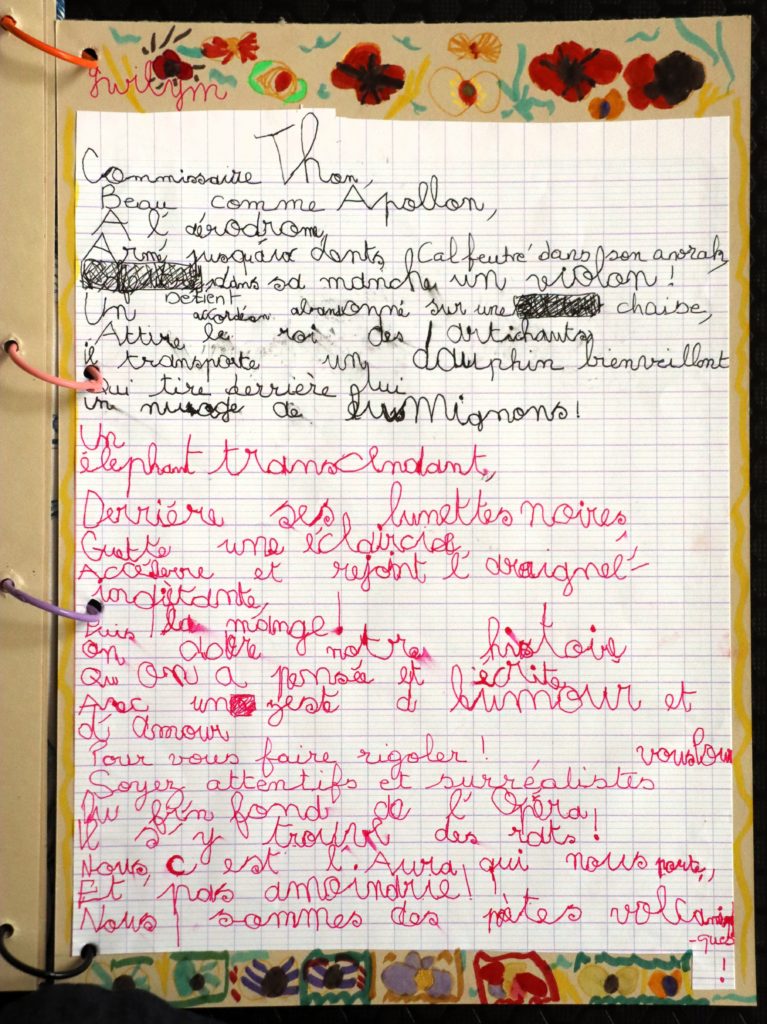 Gwilym
Commissaire Thon,
Beau comme Apollon,
A l'aérodrome,
Armé jusqu'aux dents, Calfeutré dans son anorak
dans sa manche un violon !
Détient
Un accordéon abandonné sur une chaise,
Attire le roi des artichauts,
il transporte un dauphin bienveillant
Qui tire derrière lui
un nuage de Mignons !
Un
éléphant transcendant,
Derriére ses lunettes noires
Guette une éclaircie,
Accélerre et rejoint l'araignée
Puis la mange !
on adore notre histoire
Qu'on a pensée et écrite
Avec un zest d'humour et
d'amour
Pour vous faire rigoler ! vous
Soyez attentifs et surréalistes
Au fin fond de l'Opéra,
Il s'y trouve des rats !
Nous, c'est l'Aura qui nous porte,
Et pas amoindrie !
Nous sommes des poètes volcaniques
!